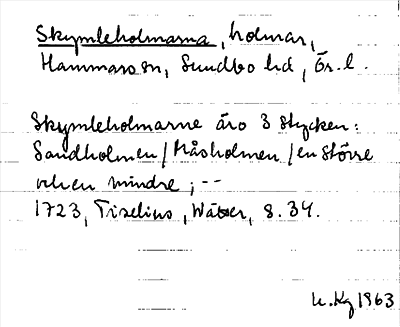 Skymleholmarna, holmar,
Hammars sn, Sundbo hd, Ör. l.
Skymleholmarne äro 3 stycken:
Sandholmen/Måsholmen/en större
och en mindre; --
1723, Tiselius, Wätter, s. 34.
Kg 1963